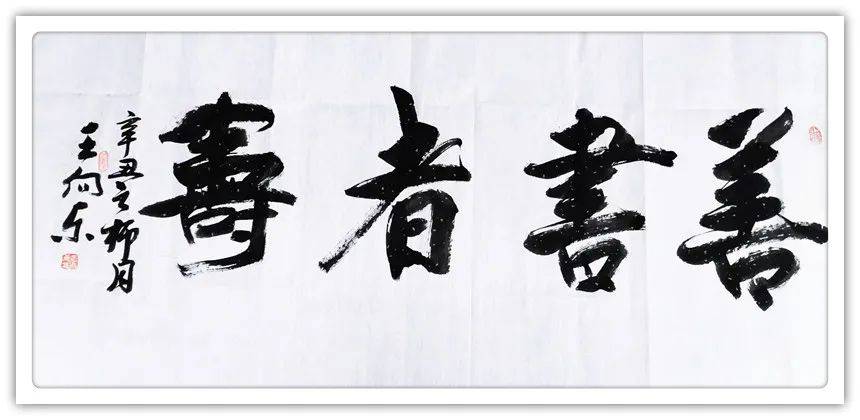 善書者壽
辛丑之柳月
王向东